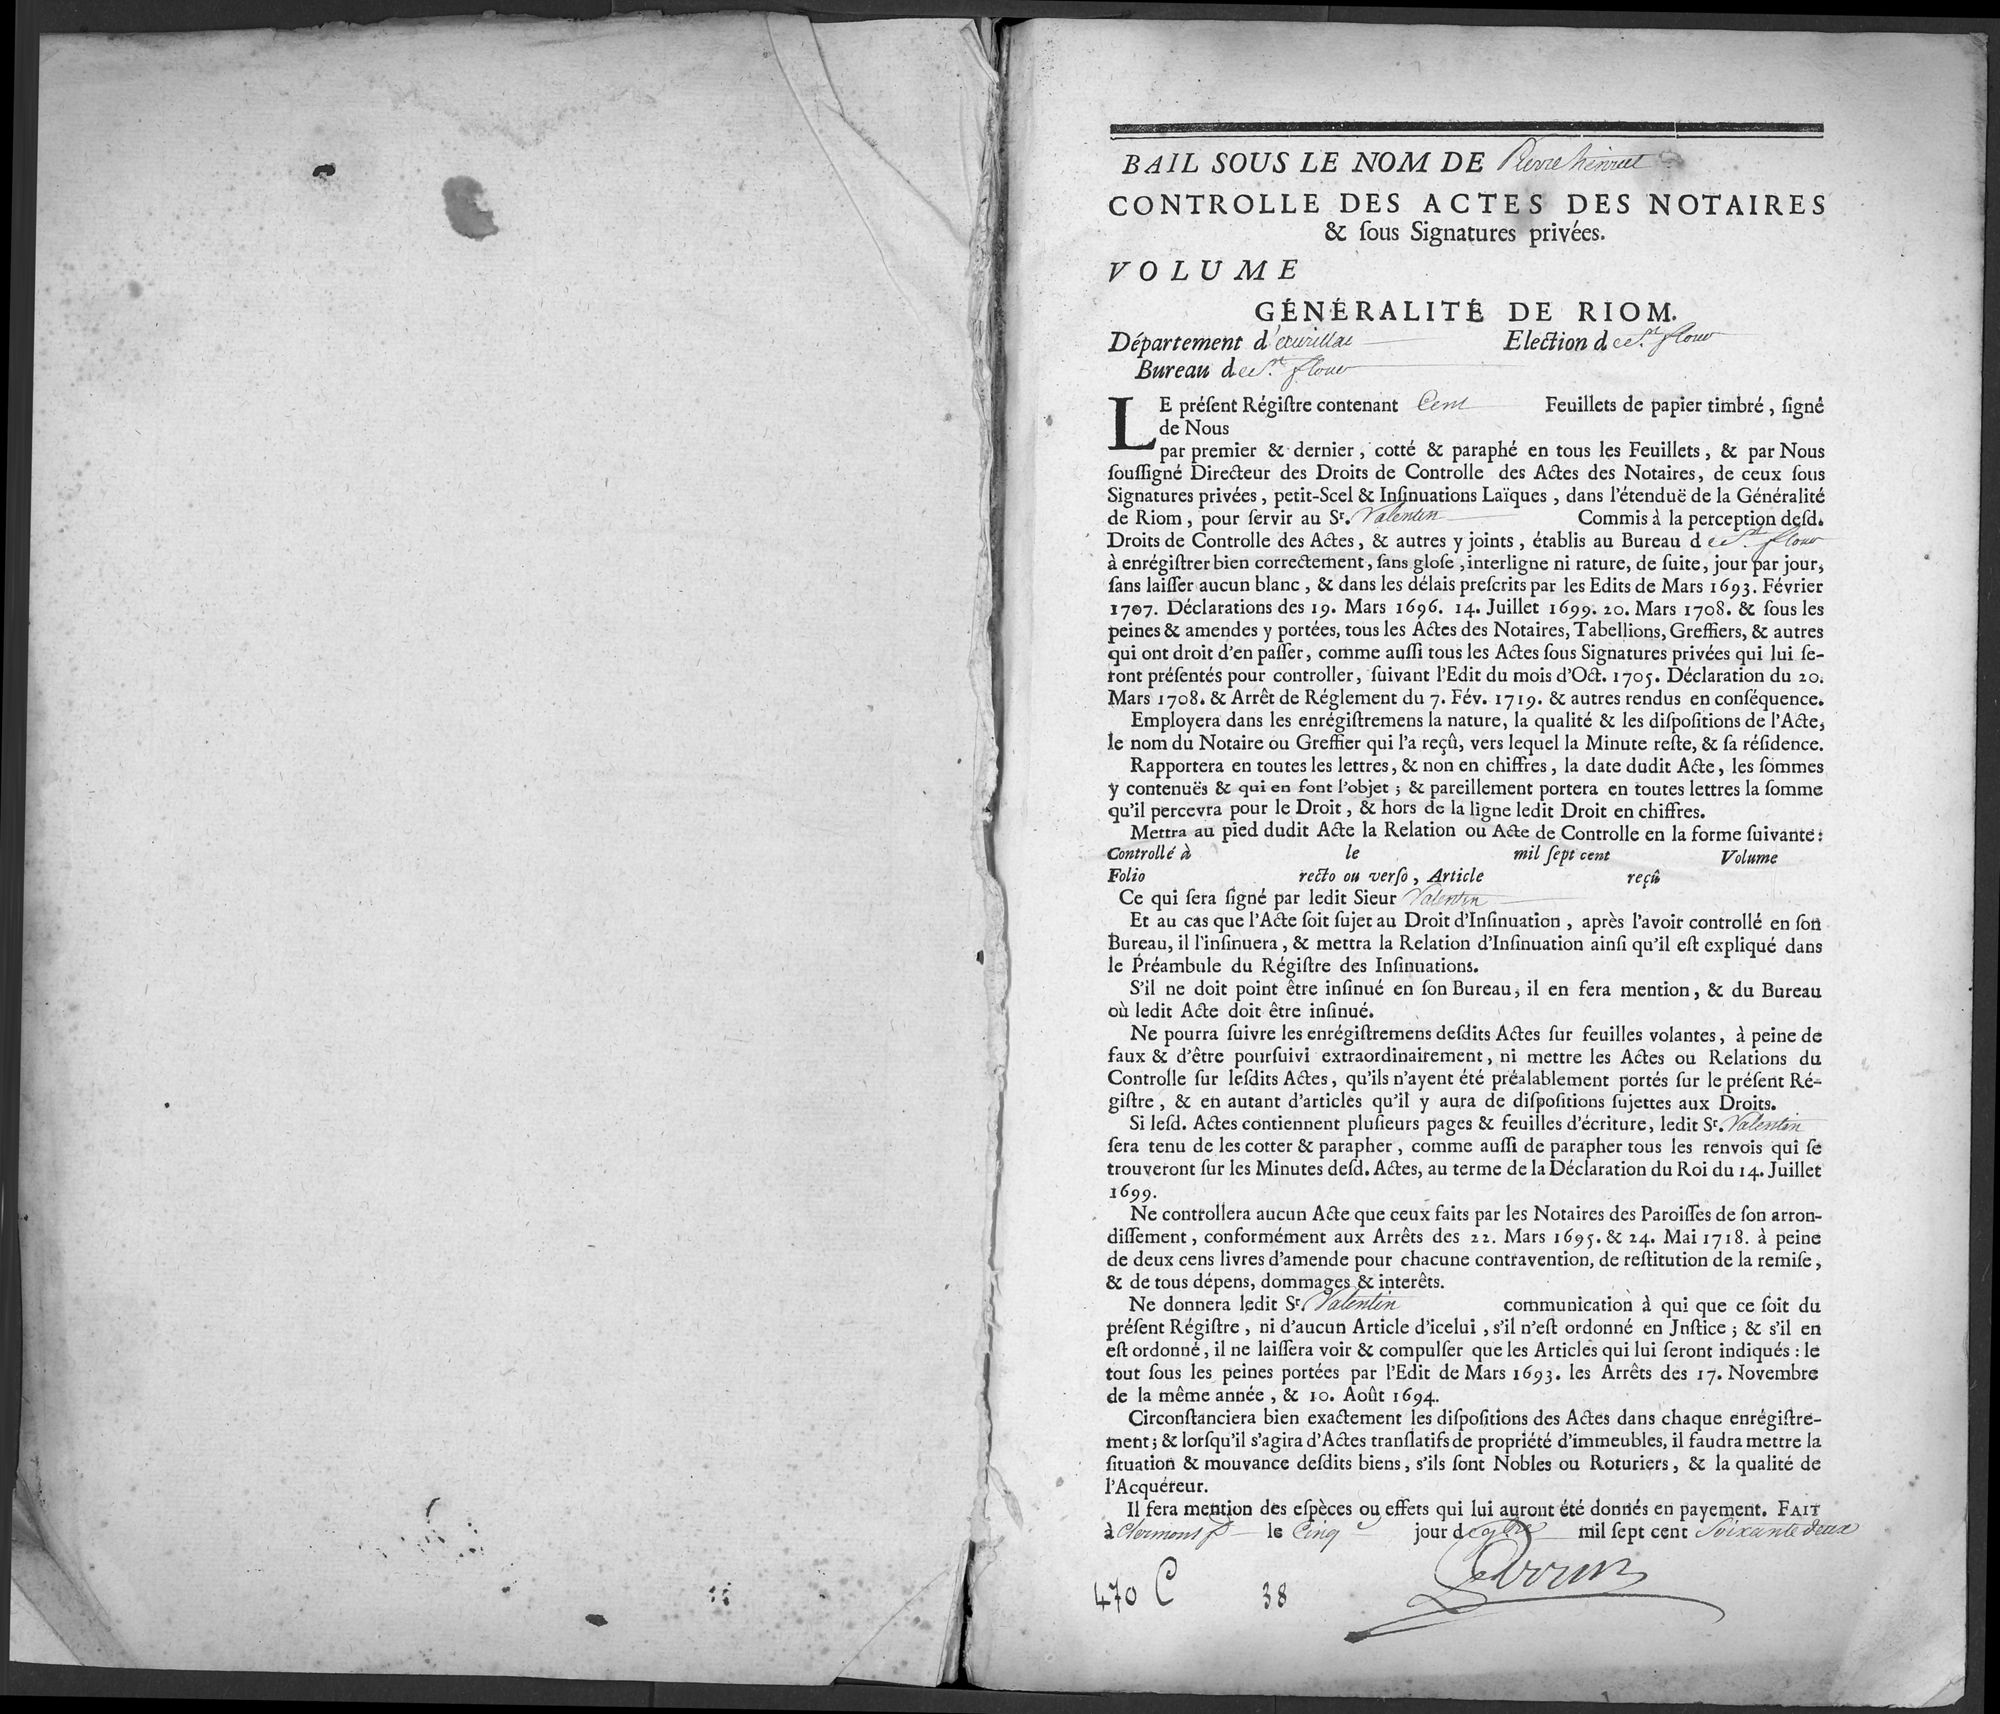 BAIL SOUS LE NOM DE Pierre henriet
CONTROLLE DES ACTES DES NOTAIRES
& ſous Signatures privées.
VOLUME
GÉNÉRALITÉ DE RIOM.
Département d'aurillac Election de St. flour
Bureau de St. flour
LE préſent Régiſtre contenant Cent Feuillets de papier timbré, ſigné
de Nous
par premier & dernier, cotté & paraphé en tous les Feuillets, & par Nous
ſouſſigné Directeur des Droits de Controlle des Actes des Notaires, de ceux ſous
Signatures privées, petit-Scel & Inſinuations Laïques, dans l'étenduë de la Généralité
de Riom, pour ſervir au Sr. Valentin Commis à la perception deſd.
Droits de Controlle des Actes, & autres y joints, établis au Bureau de St. flour
à enrégiſtrer bien correctement, ſans gloſe, interligne ni rature, de ſuite, jour par jour,
ſans laiſſer aucun blanc, & dans les délais preſcrits par les Edits de Mars 1693. Février
1707. Déclarations des 19. Mars 1696. 14. Juillet 1699. 20. Mars 1708. & ſous les
peines & amendes y portées, tous les Actes des Notaires, Tabellions, Greffiers, & autres
qui ont droit d'en paſſer, comme auſſi tous les Actes ſous Signatures privées qui lui ſe-
ront préſentés pour controller, ſuivant l'Edit du mois d'Oct. 1705. Déclaration du 20.
Mars 1708. & Arrêt de Réglement du 7. Fév. 1719. & autres rendus en conſéquence.
Employera dans les enrégiſtremens la nature, la qualité & les diſpoſitions de l'Acte,
le nom du Notaire ou Greffier qui l'a reçû, vers lequel la Minute reſte, & ſa réſidence.
Rapportera en toutes les lettres, & non en chiffres, la date dudit Acte, les ſommes
y contenuës & qui en font l'objet; & pareillement portera en toutes lettres la ſomme
qu'il percevra pour le Droit, & hors de la ligne ledit Droit en chiffres.
Mettra au pied dudit Acte la Relation ou Acte de Controlle en la forme ſuivante:
Controllé à le mil ſept cent Volume
Folio recto ou verſo, Article reçû
Ce qui ſera ſigné par ledit Sieur Valentin
Et au cas que l'Acte ſoit ſujet au Droit d'Inſinuation, après l'avoir controllé en ſon
Bureau, il l'inſinuera, & mettra la Relation d'Inſinuation ainſi qu'il eſt expliqué dans
le Préambule du Régiſtre des Inſinuations.
S'il ne doit point être inſinué en ſon Bureau, il en fera mention, & du Bureau
où ledit Acte doit être inſinué.
Ne pourra ſuivre les enrégiſtremens deſdits Actes ſur feuilles volantes, à peine de
faux & d'être pourſuivi extraordinairement, ni mettre les Actes ou Relations du
Controlle ſur leſdits Actes, qu'ils n'ayent été préalablement portés ſur le préſent Ré-
giſtre, & en autant d'articles qu'il y aura de diſpoſitions ſujettes aux Droits.
Si leſd. Actes contiennent pluſieurs pages & feuilles d'écriture, ledit Sr. Valentin
ſera tenu de les cotter & parapher, comme auſſi de parapher tous les renvois qui ſe
trouveront ſur les Minutes deſd. Actes, au terme de la Déclaration du Roi du 14. Juillet
1699.
Ne controllera aucun Acte que ceux faits par les Notaires des Paroiſſes de ſon arron-
diſſement, conformément aux Arrêts des 22. Mars 1695. & 24. Mai 1718. à peine
de deux cens livres d'amende pour chacune contravention, de reſtitution de la remiſe,
& de tous dépens, dommages & interêts.
Ne donnera ledit Sr. Valentin communication à qui que ce ſoit du
préſent Régiſtre, ni d'aucun Article d'icelui, s'il n'eſt ordonné en Juſtice; & s'il en
eſt ordonné, il ne laiſſera voir & compulſer que les Articles qui lui ſeront indiqués: le
tout ſous les peines portées par l'Edit de Mars 1693. les Arrêts des 17. Novembre
de la même année, & 10. Août 1694.
Circonſtanciera bien exactement les diſpoſitions des Actes dans chaque enrégiſtre-
ment; & lorſqu'il s'agira d'Actes tranſlatifs de propriété d'immeubles, il faudra mettre la
ſituation & mouvance deſdits biens, s'ils ſont Nobles ou Roturiers, & la qualité de
l'Acquéreur.
Il fera mention des eſpèces ou effets qui lui auront été donnés en payement. FAIT
à Clermont fd le Cinq jour de mil ſept cent Soixante deux
470 C 38